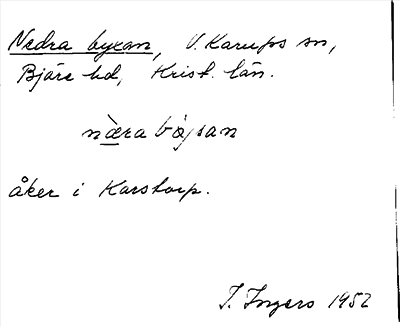 Nedra byxan, V. Karups sn,
Bjäre hd, Krist. län.
næ̀ra bö̀jsan
åker i Karstorp.
I. Ingers 1952